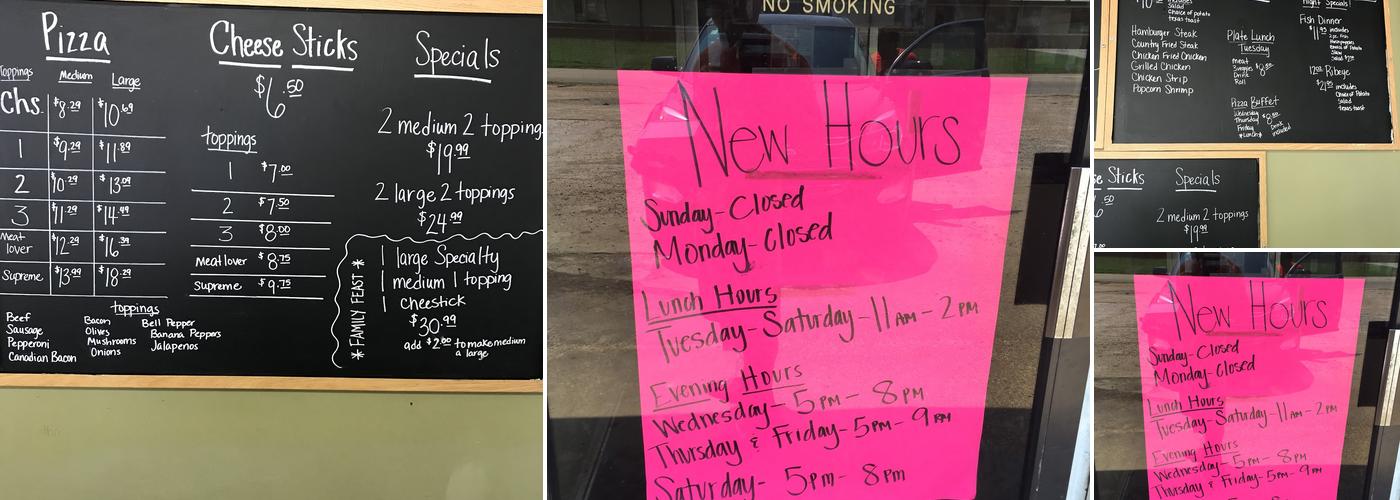 Pizza
Toppings Medium Large
Chs. $8.29 $10.69
1 $9.29 $11.89
2 $10.29 $13.09
3 $11.29 $14.49
Meat lover $12.29 $16.39
Supreme $13.99 $18.29
toppings
Beef Bacon Bell Pepper
Sausage Olives Banana Peppers
Pepperoni Mushrooms Jalapenos
Canadian Bacon Onions
Cheese Sticks
$6.50
toppings
1 $7.00
2 $7.50
3 $8.00
Meat lover $8.75
Supreme $9.75
Specials
2 medium 2 topping
$19.99
2 large 2 toppings
$24.99
* FAMILY FEAST *
1 large Specialty
1 medium 1 topping
1 cheestick
$30.99
add $2.00 to make medium
a large
NO SMOKING
New Hours
Sunday-Closed
Monday-Closed
Lunch Hours
Tuesday-Saturday-11AM-2PM
Evening Hours
Wednesday-5PM-8PM
Thursday & Friday-5PM-9PM
Saturday-5pm-8pm
Salad
choice of potato
texas toast
Hamburger Steak
Country Fried Steak
Chicken Fried Chicken
Grilled Chicken
Chicken Strip
Popcorn Shrimp
Plate Lunch
Tuesday
Meat
3 veggies
Drink
Roll
Pizza Buffet
Wednesday
Thursday
Friday
*Lunch*
Drink
included
Night Specials!
Fish Dinner
$11.95 includes
12oz Ribeye
includes
Choice of Potato
Salad
texas toast
Sticks
Specials
.50
2 medium 2 toppings
$19.99
New Hours
Sunday-Closed
Monday-Closed
Lunch Hours
Tuesday-Saturday-11AM-2PM
Evening Hours
Wednesday-5PM-8PM
Thursday & Friday-5PM-9PM